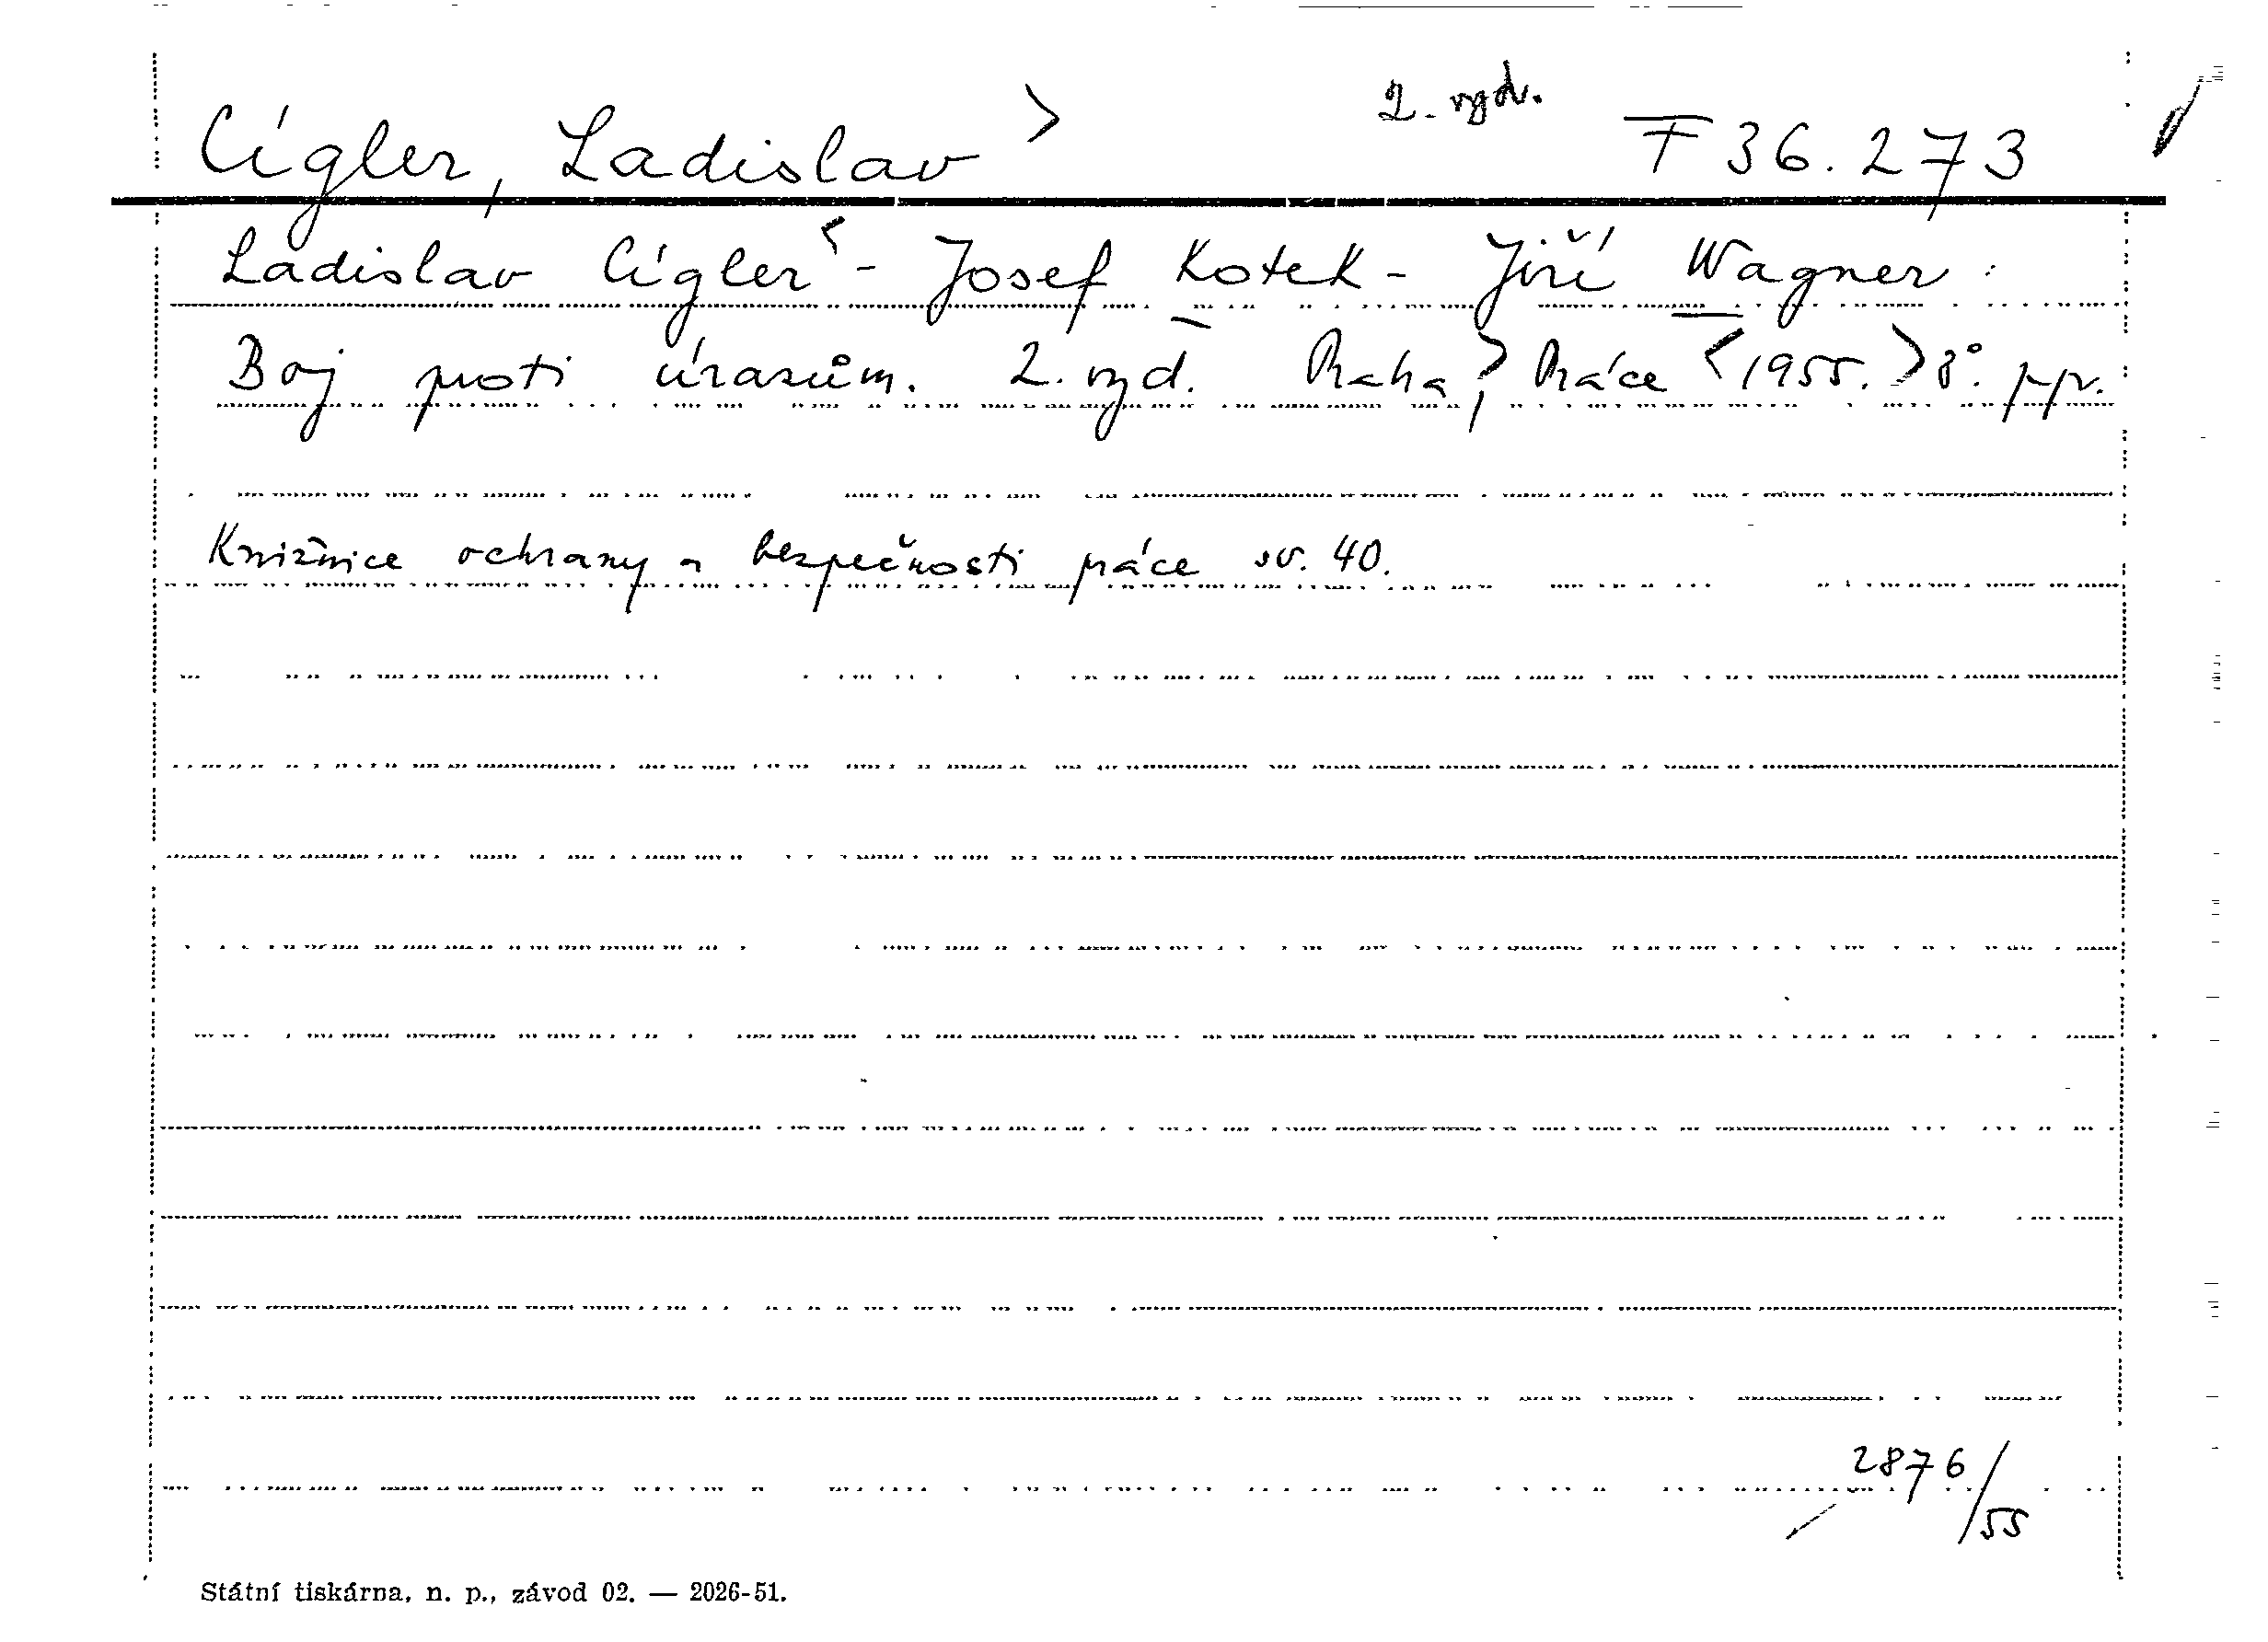 Cígler, Ladislav > 2. vyd. F 36.273
Ladislav Cígler < - Josef Kotek - Jiří Wagner :
Boj proti úrazům. 2. vyd. Praha, > Práce < 1955. > 8°. ppr.
Knižnice ochrany a bezpečnosti práce sv. 40.
2876/55
Státní tiskárna, n. p., závod 02. — 2026-51.